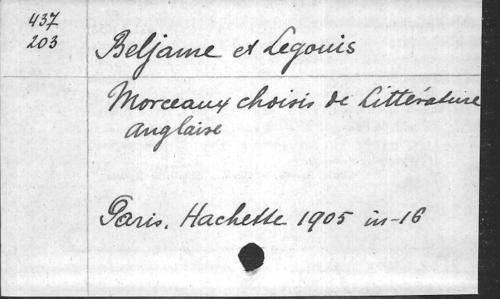 437
203
Beljame et Legouis
Morceaux choisis de Littérature
anglaise
Paris, Hachette 1905 in-16